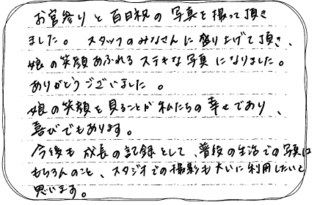 お宮参りと百日祝の写真を撮って頂き
ました。スタッフのみなさんに盛り上げて頂き、
娘の笑顔あふれるステキな写真になりました。
ありがとうございました。
娘の笑顔を見ることが私たちの幸せであり、
喜びでもあります。
今後も成長の記録として、普段の生活での写真は
もちろんのこと、スタジオでの撮影も大いに利用したいと
思います。